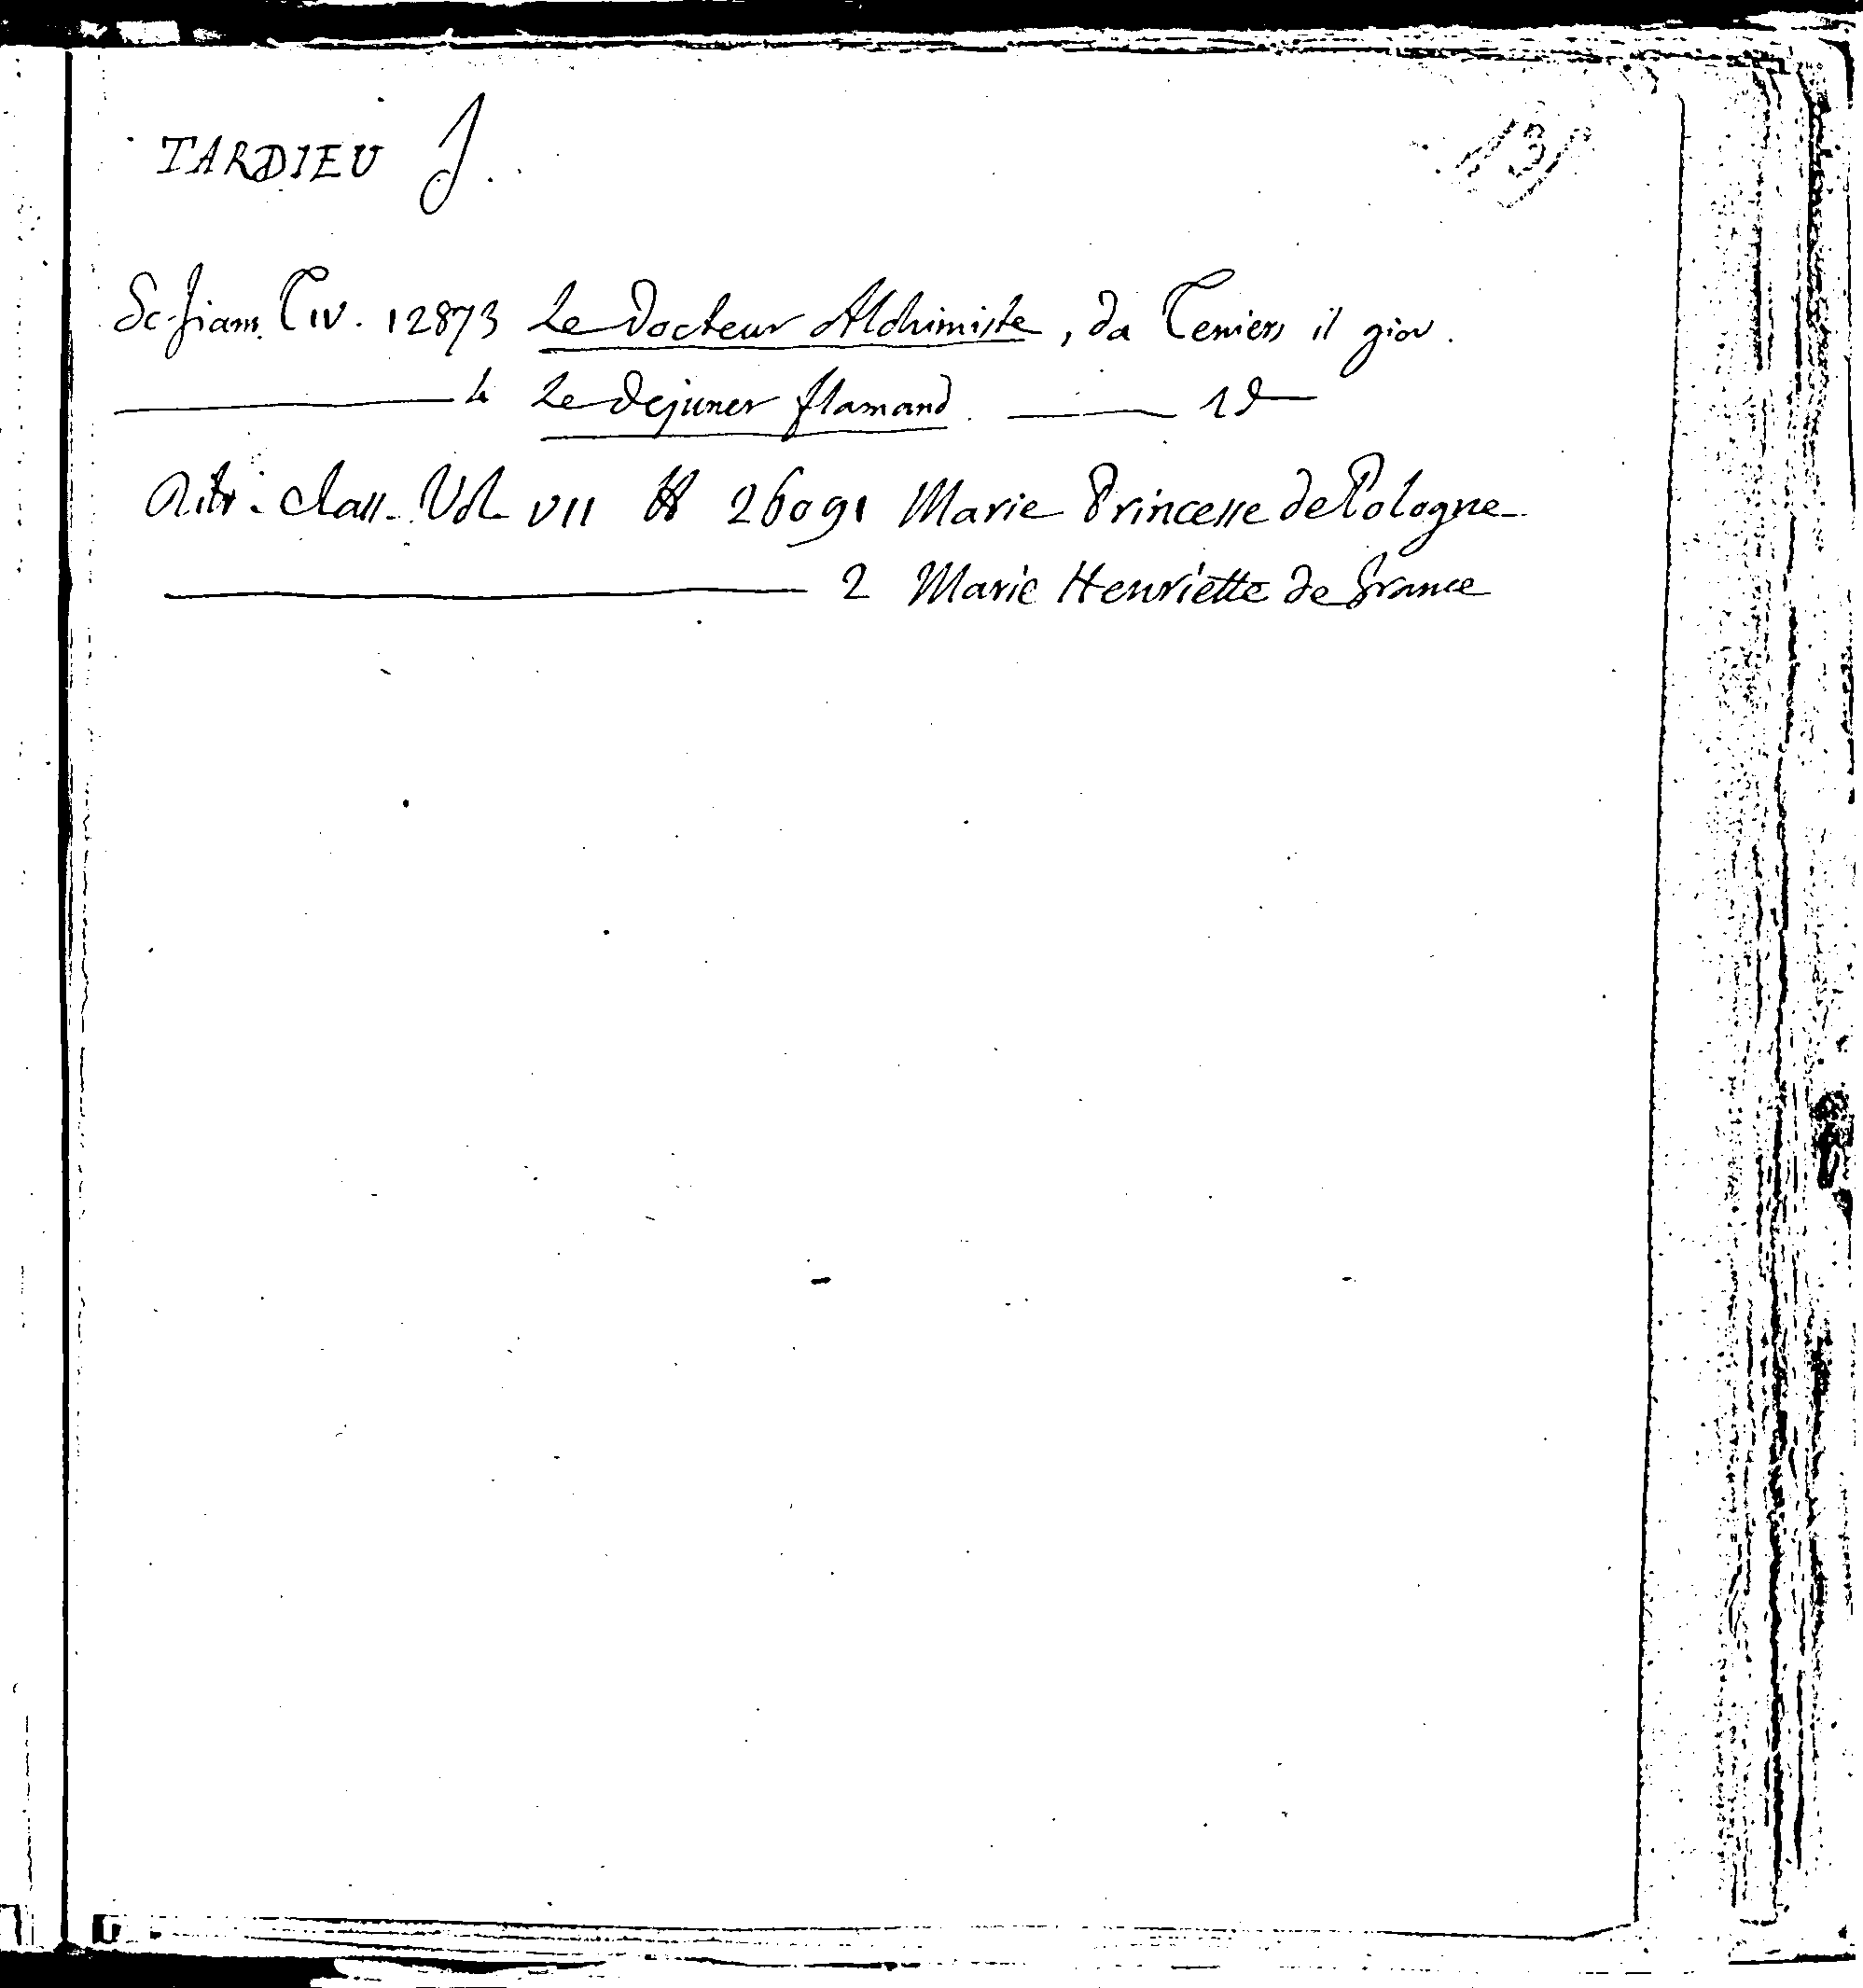 TARDIEU J.
Sc. fiam. T IV. 12873 Le Docteur Alchimiste, da Teniers il giov.
4 Le Dejuner flamand. Id
Ritr. class. Vol. VII 26091 Marie Princesse de Pologne
2 Marie Henriette de France